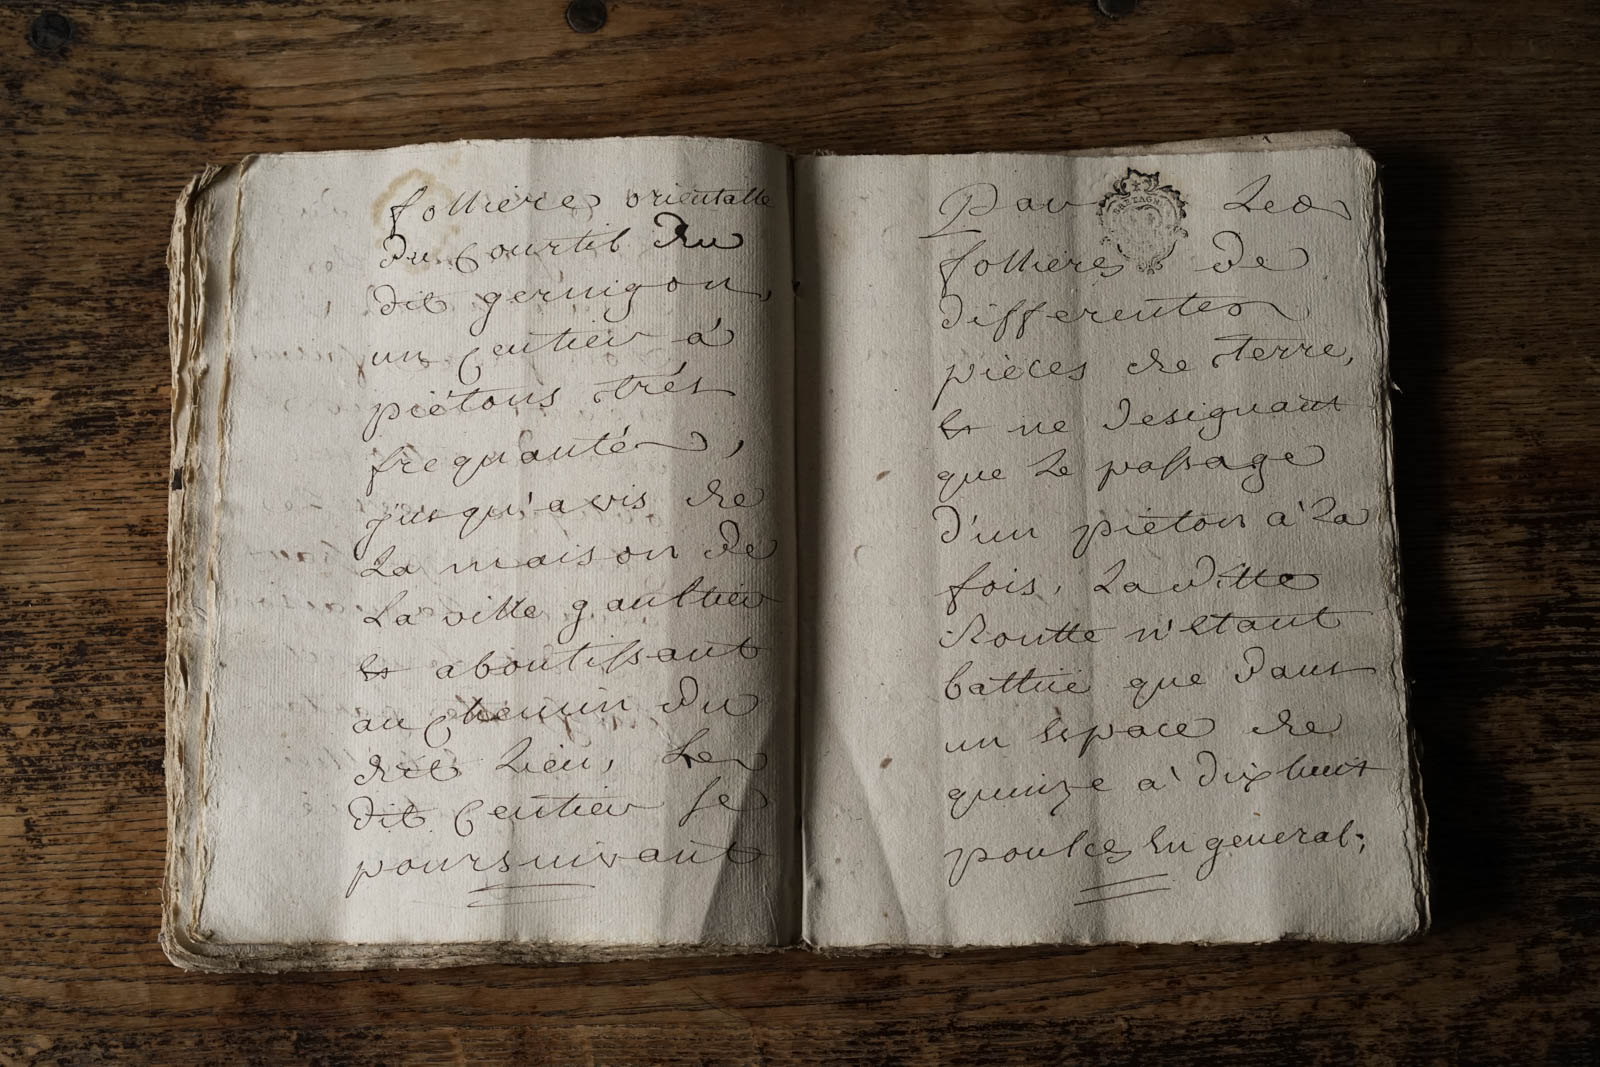 follieres orientalle
du courtil du
dit gernigon,
un centier à
piétons trés
frequantés,
jusqu'a vis de
La maison de
La ville gaultier
Et aboutissant
au chemin du
dit Lieu, Le
dit centier se
poursuivant
Par Les
BRETAGNE
follieres de
differentes
pièces de terre,
Et ne designant
que Le passage
d'un piéton à La
fois, La ditte
Routte n'Etant
battüe que dans
un Espace de
quinze à dixhuit
poulces En general;